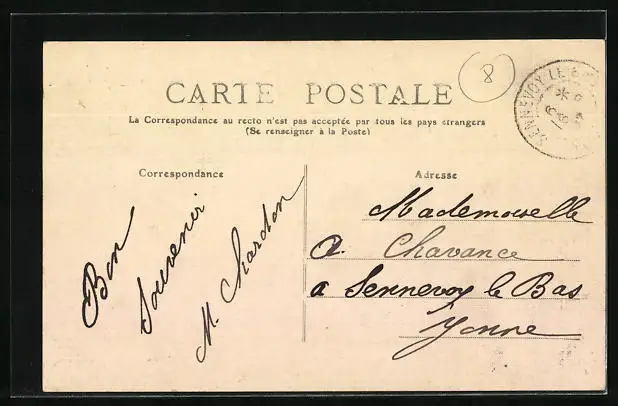 CARTE POSTALE
8
La Correspondance au recto n'est pas acceptée par tous les pays étrangers
(Se renseigner à la Poste)
SENNEVOY LE
Correspondance
Adresse
Bon
Souvenir
M. Chardon
Mademoiselle
A. Chavance
a Sennevoy le Bas
Yonne